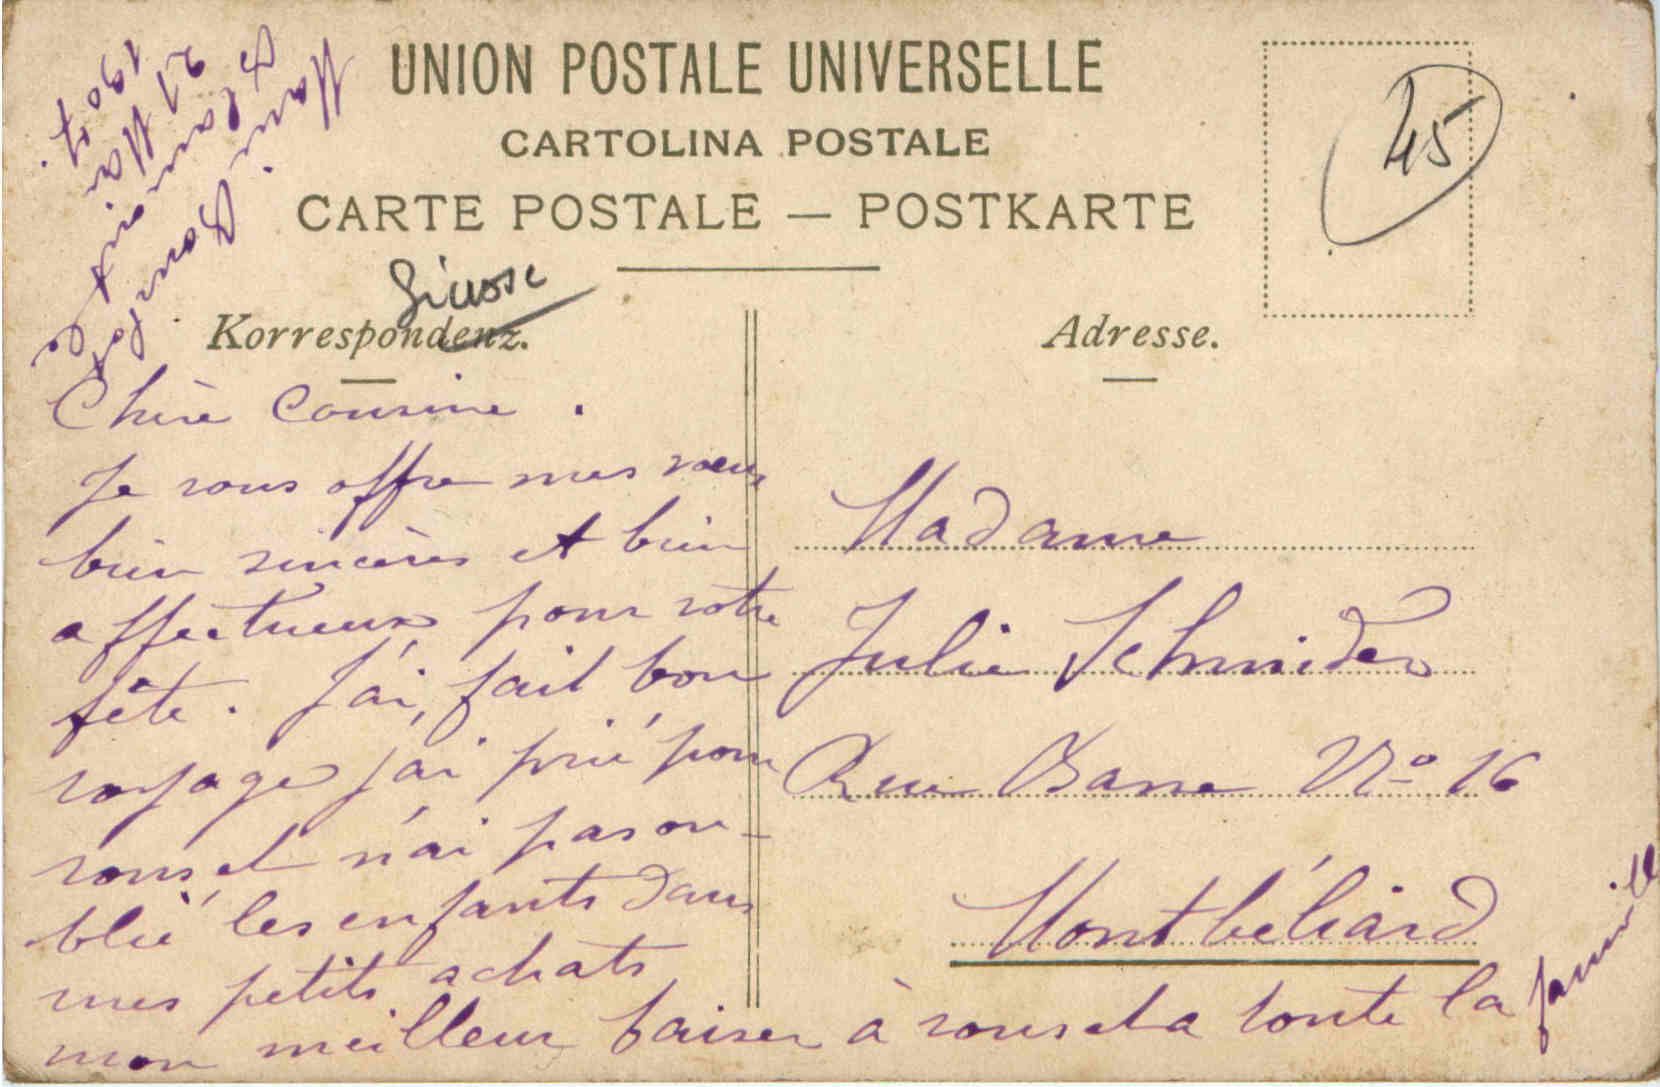 UNION POSTALE UNIVERSELLE
CARTOLINA POSTALE
CARTE POSTALE — POSTKARTE
45
Korrespondenz.
Adresse.
21 Mai
1907.
Chère Cousine.
Je vous offre mes vœux
bien sincères et bien
affectueux pour votre
fête. J'ai fait bon
voyage j'ai prié pour
vous et n'ai pas ou-
blié les enfants dans
mes petits achats
mon meilleur baiser à vous et a toute la famille
Madame
Julie Schnider
Rue Basse No 16
Montbéliard